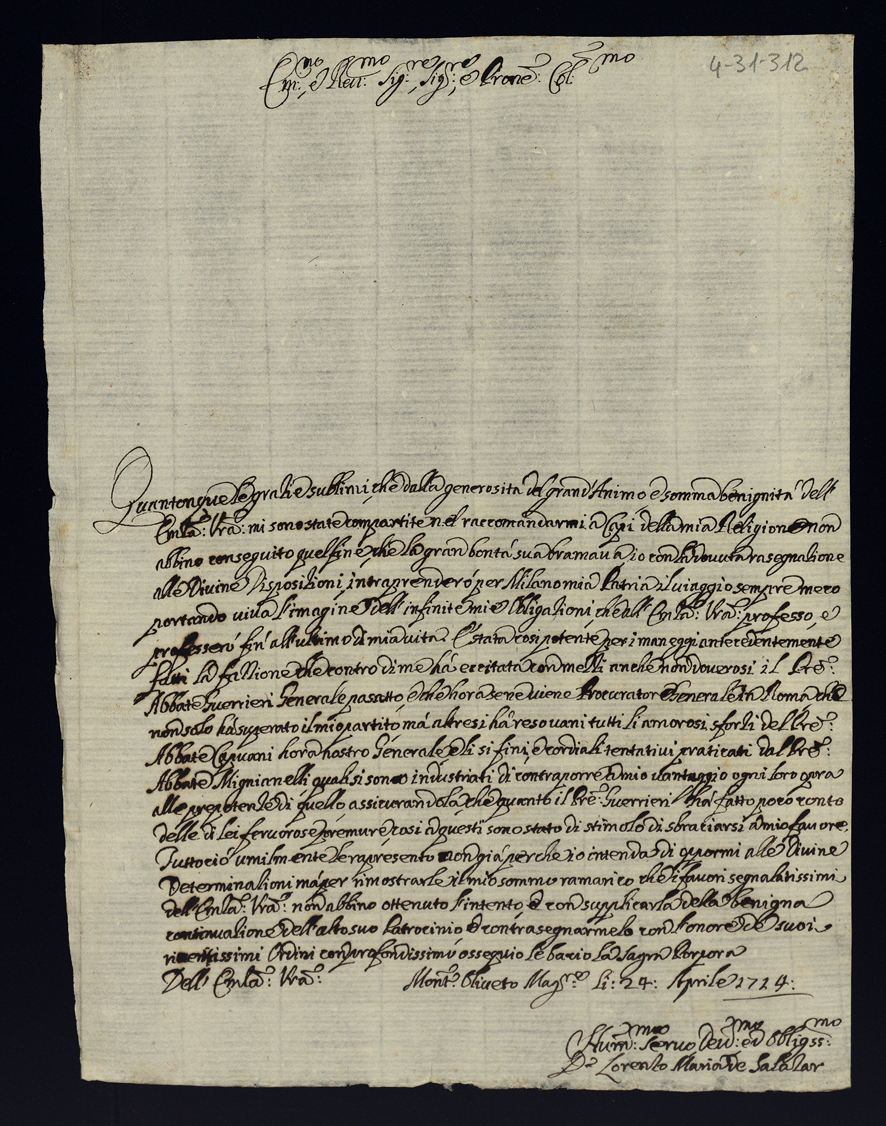 4-31-312
Em:mo e Reu:mo Sig:re, Sig:re, e Prone: Col:mo
Quantonque le grazie sublimi, che dalla generosità del grand'Animo e somma benignità dell'
Emza: Vra: mi sono state compartite nel raccomandarmi a Capi della mia Religione non
abbino conseguito quel fine che la gran bontà sua bramaua, io con la douuta rasegnazione
alle Diuine Disposizioni, intraprenderó per Milano mia Patria il viaggio sempre meco
portando viua l'imagine dell'infinite mie obligazioni, che all'Emza: Vra: professo, e
professeró fin'all'ultimo di mia vita. É stata cosi potente per i maneggi antecedentemente
fatti la fazzione che contro di me há eccitata con mezzi anche non doverosi il Pre:
Abbate Guerrieri Generale passato, e che hora se ne viene Procurator Generale in Roma che
non solo há superato il mio partito má altresi há resi vani tutti li amorosi sforzi del Pre:
Abbate Capuani hora nostro Generale e li si fini, e cordiali tentativi praticati dal Pre:
Abbate Mignianelli quali si sono industriati di contraporre á mio vantaggio ogni loro opra
alle prepotenze di quello assicurandola che quanto il Pre: Guerrieri há fatto poco conto
delle di lei feruorose premure cosi á questi sono stato di stimolo di sbraciarsi á mio fauore.
Tutto ció vmilmente le rapresento non giá perche io intenda di oppormi alle Diuine
Determinazioni má per rimostrarle il mio sommo ramarico che i fauori segnalatissimi
dell'Emza: Vra: non abbino ottenuto l'intento e con supplicarla della benigna
continuazione dell'alto suo Patrocinio e contrasegnarmelo con l'onore de suoi
riueritissimi Ordini con profondissimo ossequio le bacio la Sagra Porpora
Dell'Emza: Vra: Monte Oliueto Magre: Li: 24: Aprile 1714:
Hum:mo Seruo Deu:mo ed Obligss:mo
D. Lorenzo Maria de Salazar